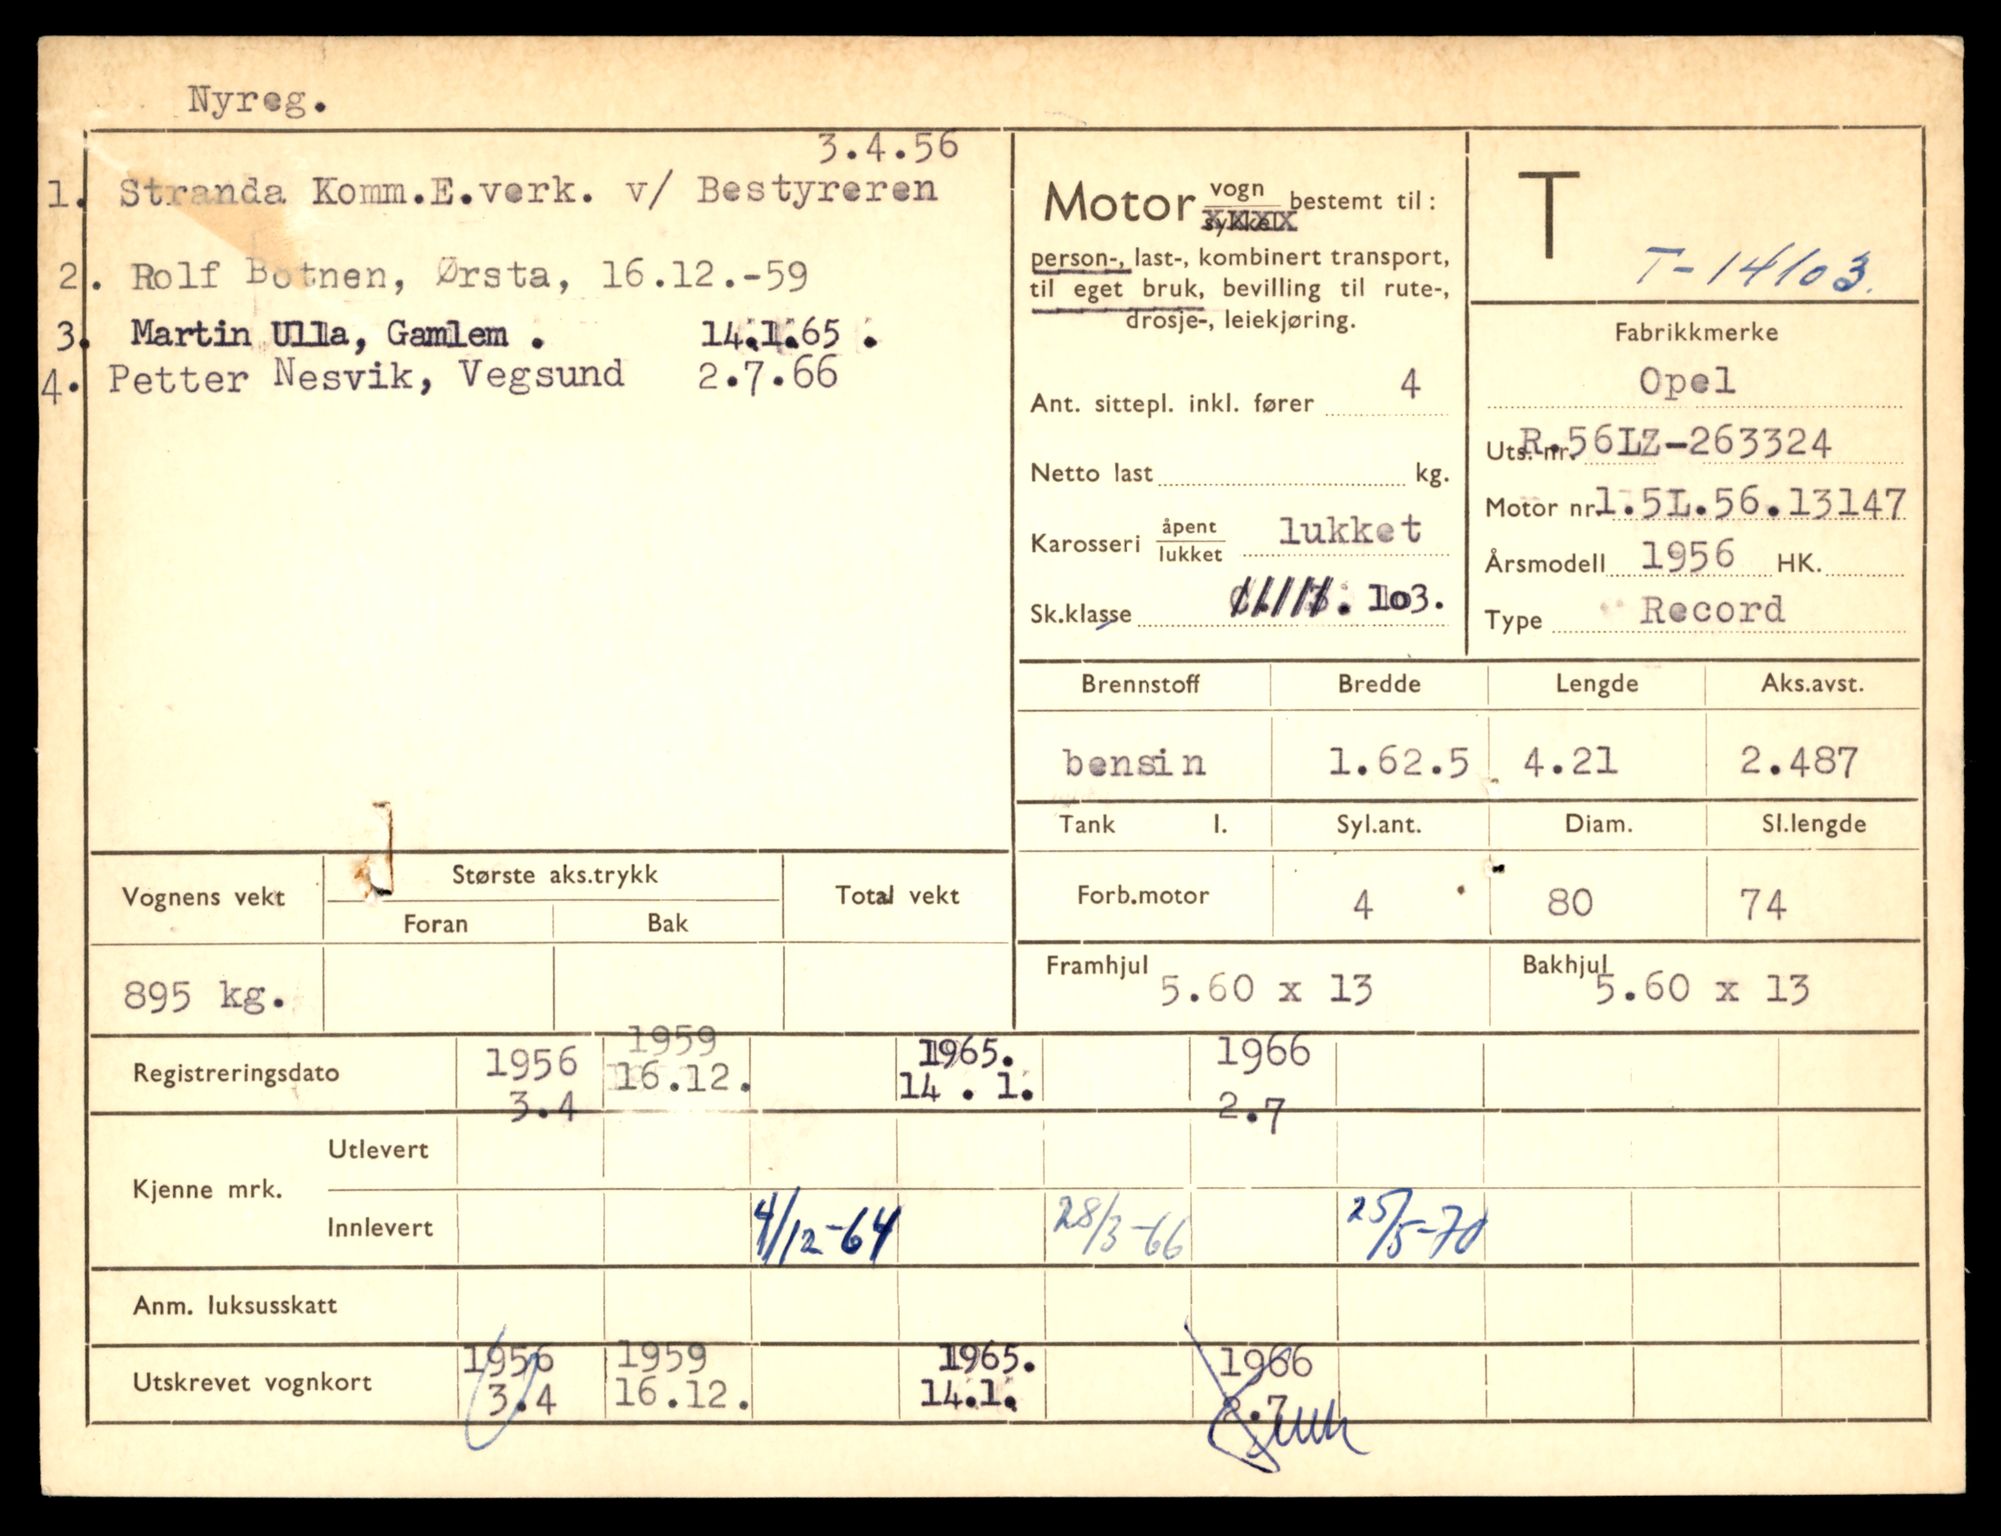 Nyreg.
3.4.56
1. Stranda Komm.E.verk. v/ Bestyreren
2. Rolf Botnen, Ørsta, 16.12.-59
3. Martin Ulla, Gamlem . 14.1.65 .
4. Petter Nesvik, Vegsund 2.7.66
Motor vogn
sykkel bestemt til :
person-, last-, kombinert transport,
til eget bruk, bevilling til rute-,
drosje-, leiekjøring.
Ant. sittepl. inkl. fører 4
Netto last kg.
Karosseri åpent
lukket lukket
Sk.klasse 103.
T
T-14103.
Fabrikkmerke
Opel
Uts. nr. R.56LZ-263324
Motor nr. 1.5L.56.13147
Årsmodell 1956 HK.
Type Record
Brennstoff Bredde Lengde Aks.avst.
bensin 1.62.5 4.21 2.487
Tank l. Syl.ant. Diam. Sl.lengde
Forb.motor 4 80 74
Framhjul 5.60 x 13 Bakhjul 5.60 x 13
Vognens vekt Største aks.trykk Total vekt
Foran Bak
895 kg.
Registreringsdato 1956 1959 1965. 1966
3.4 16.12. 14 . 1. 2.7
Kjenne mrk.
Utlevert
Innlevert 4/12-64 28/3-66 25/5-70
Anm. luksusskatt
Utskrevet vognkort 1956 1959 1965. 1966
3.4 16.12. 14.1. 2.7